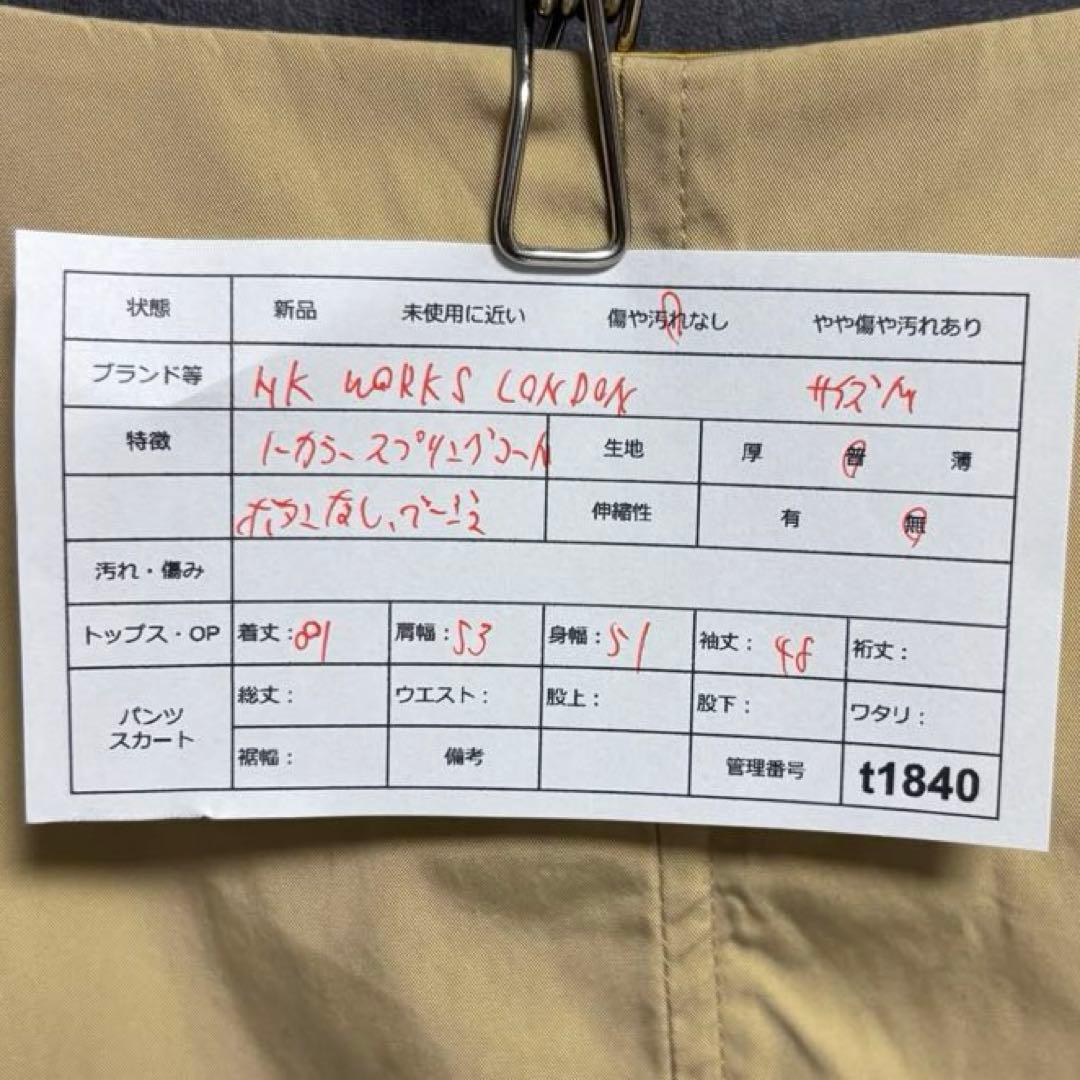 状態 新品 未使用に近い 傷や汚れなし やや傷や汚れあり
ブランド等 MK WORKS LONDON サイズM
特徴 ノーカラースプリングコート 生地 厚 普 薄
ボタンなし、ベージュ 伸縮性 有 無
汚れ・傷み
トップス・OP 着丈：81 肩幅：53 身幅：51 袖丈：48 裄丈：
パンツ スカート 総丈： ウエスト： 股上： 股下： ワタリ：
裾幅： 備考 管理番号 t1840